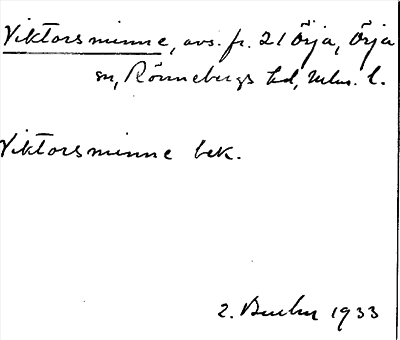 Viktorsminne, avs. fr. 21 Örja, Örja
sn, Rönnebergs hd, Mlm. l.
Viktorsminne bek.
2. 1933